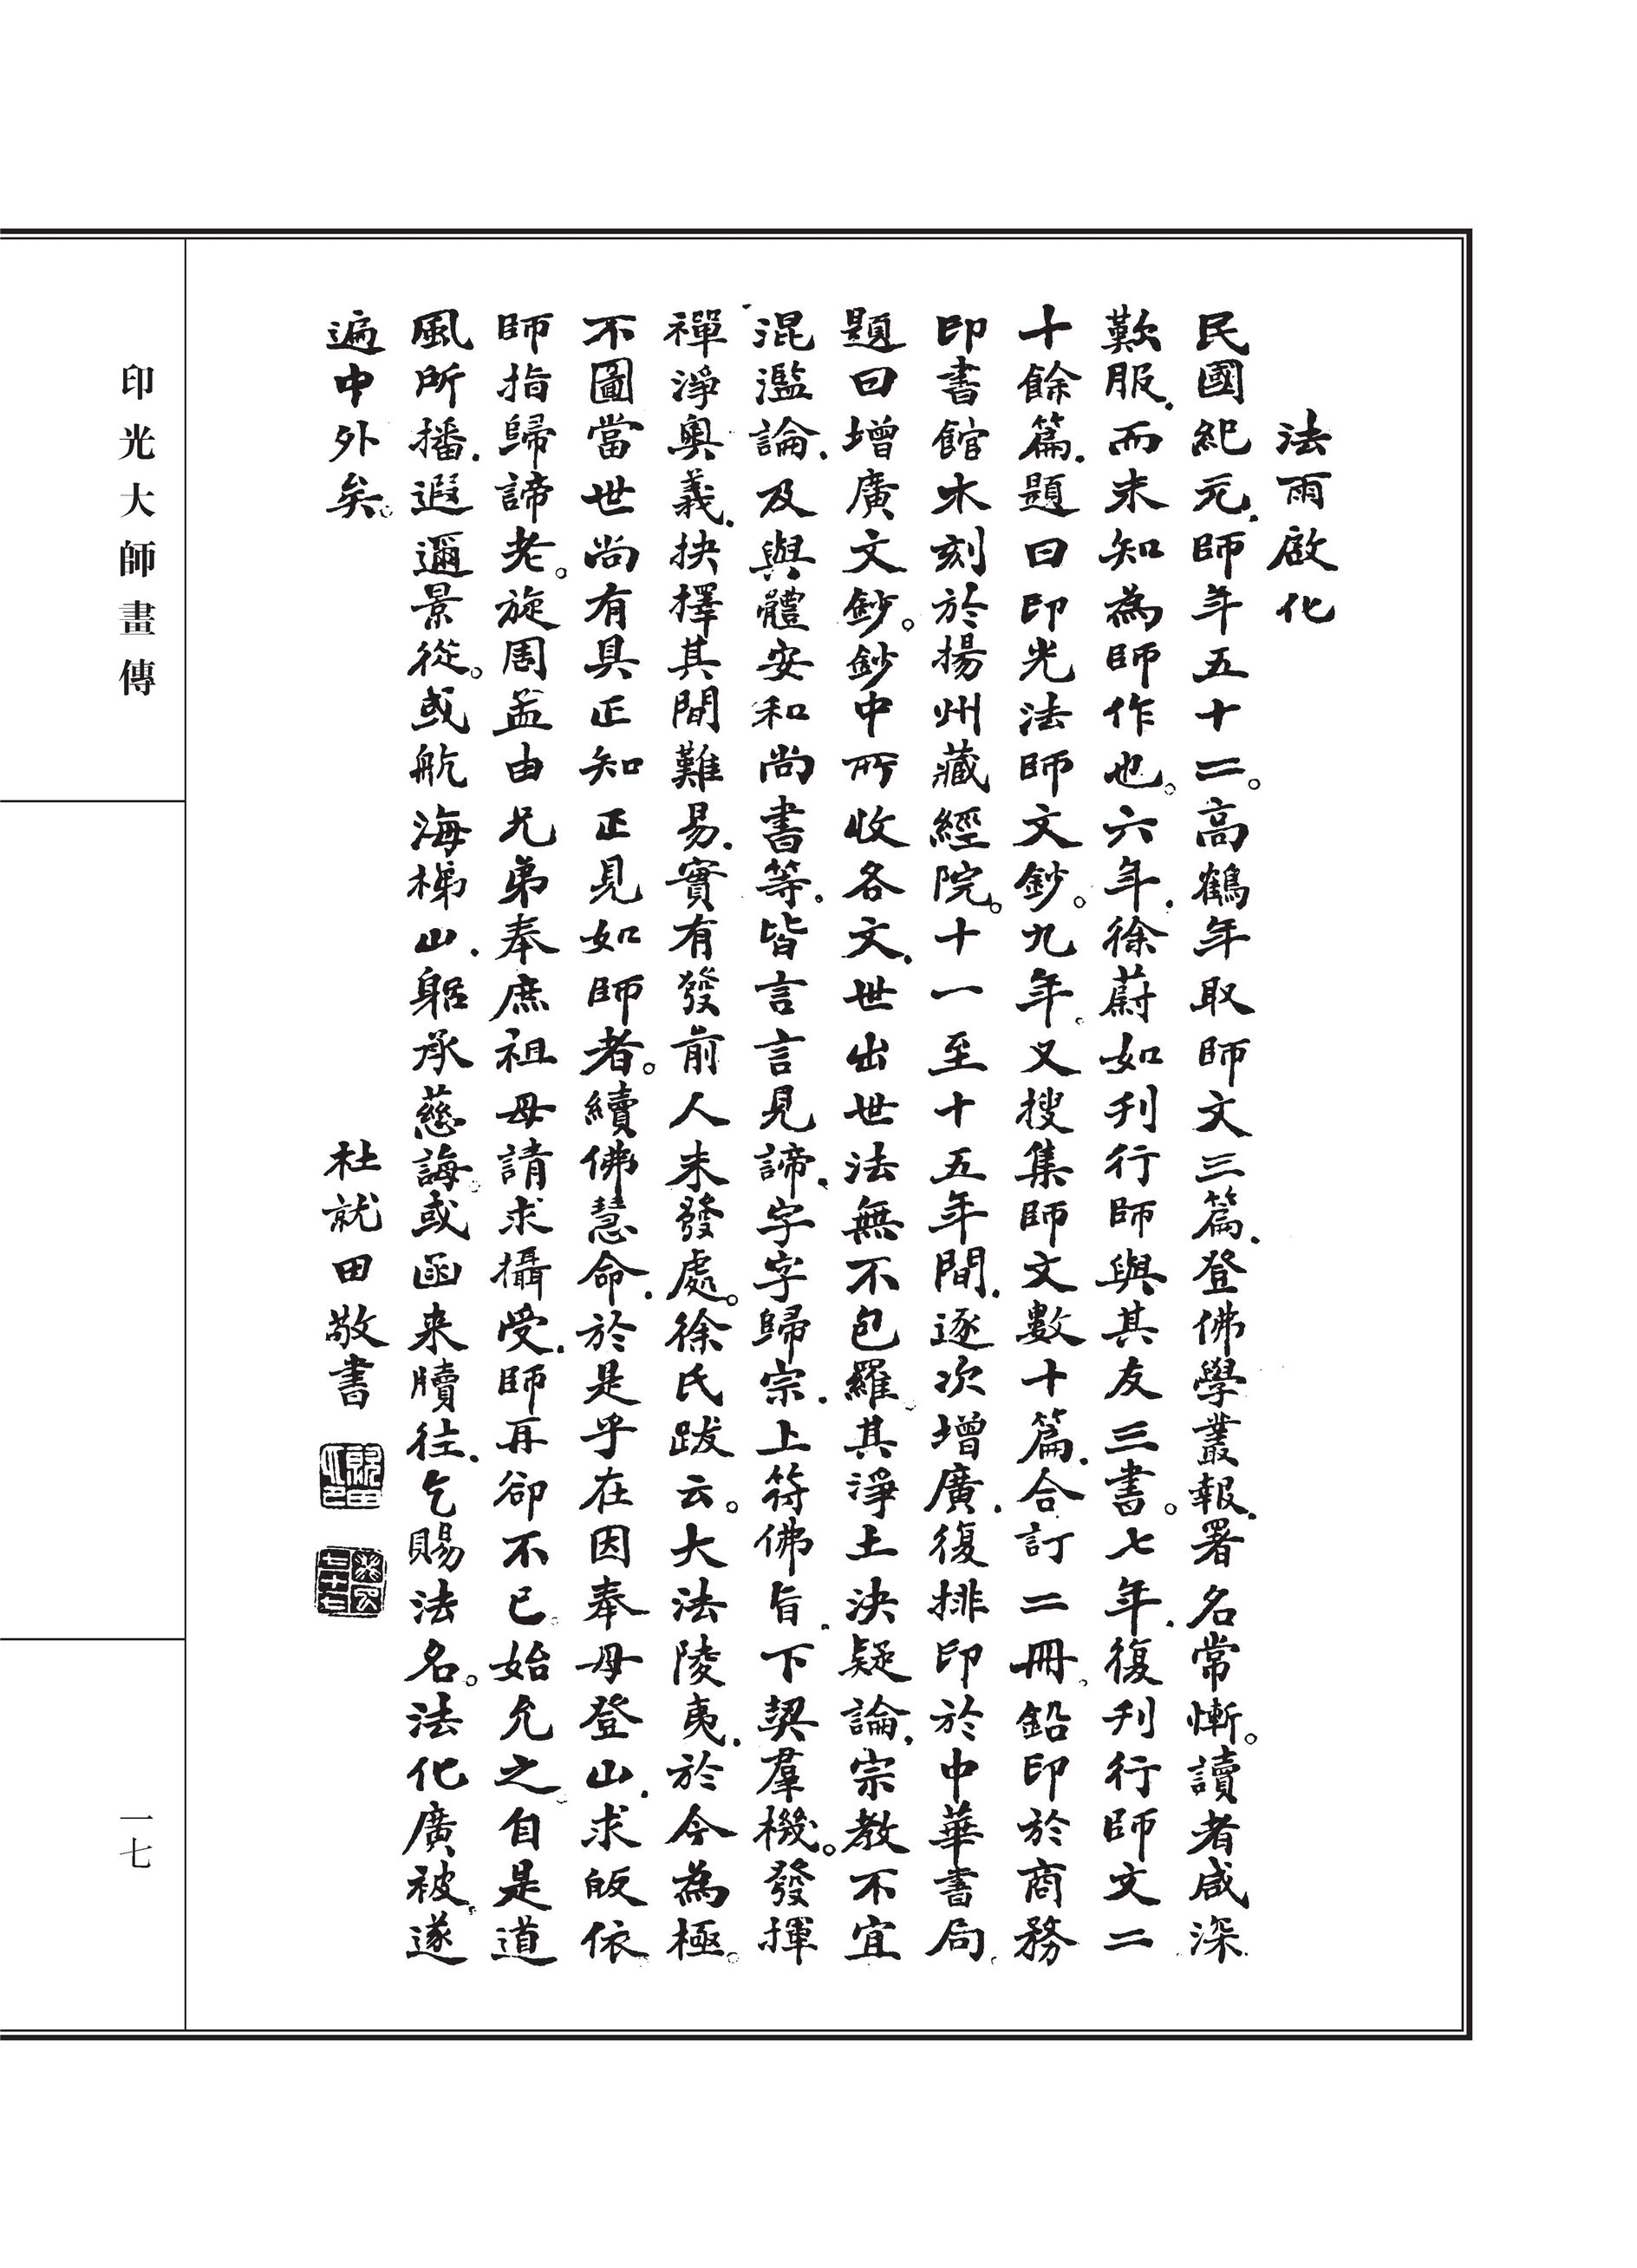 法雨啟化
民國紀元.師年五十二。高鶴年取師文三篇.登佛學叢報.署名常慚。讀者咸深
歎服.而未知為師作也。六年.徐蔚如刊行師與其友三書。七年.復刊行師文二
十餘篇.題曰印光法師文鈔。九年。又搜集師文數十篇.合訂二冊。鉛印於商務
印書館木刻於揚州藏經院。十一至十五年間.逐次增廣.復排印於中華書局。
題曰增廣文鈔。鈔中所收各文.世出世法無不包羅。其淨土決疑論.宗教不宜
混濫論.及與體安和尚書等。皆言言見諦.字字歸宗.上符佛旨.下契羣機。發揮
禪淨奧義.抉擇其間難易.實有發前人未發處。徐氏跋云。大法陵夷.於今為極。
不圖當世尚有具正知正見如師者。續佛慧命.於是乎在因奉母登山.求皈依
師指歸諦老。旋周孟由兄弟奉庶祖母請求攝受.師再卻不已。始允之。自是道
風所播.遐邇景從。或航海梯山.躬承慈誨。或函来牘往.乞賜法名。法化廣被。遂
遍中外矣。
杜就田敬書
印光大師畫傳
一七